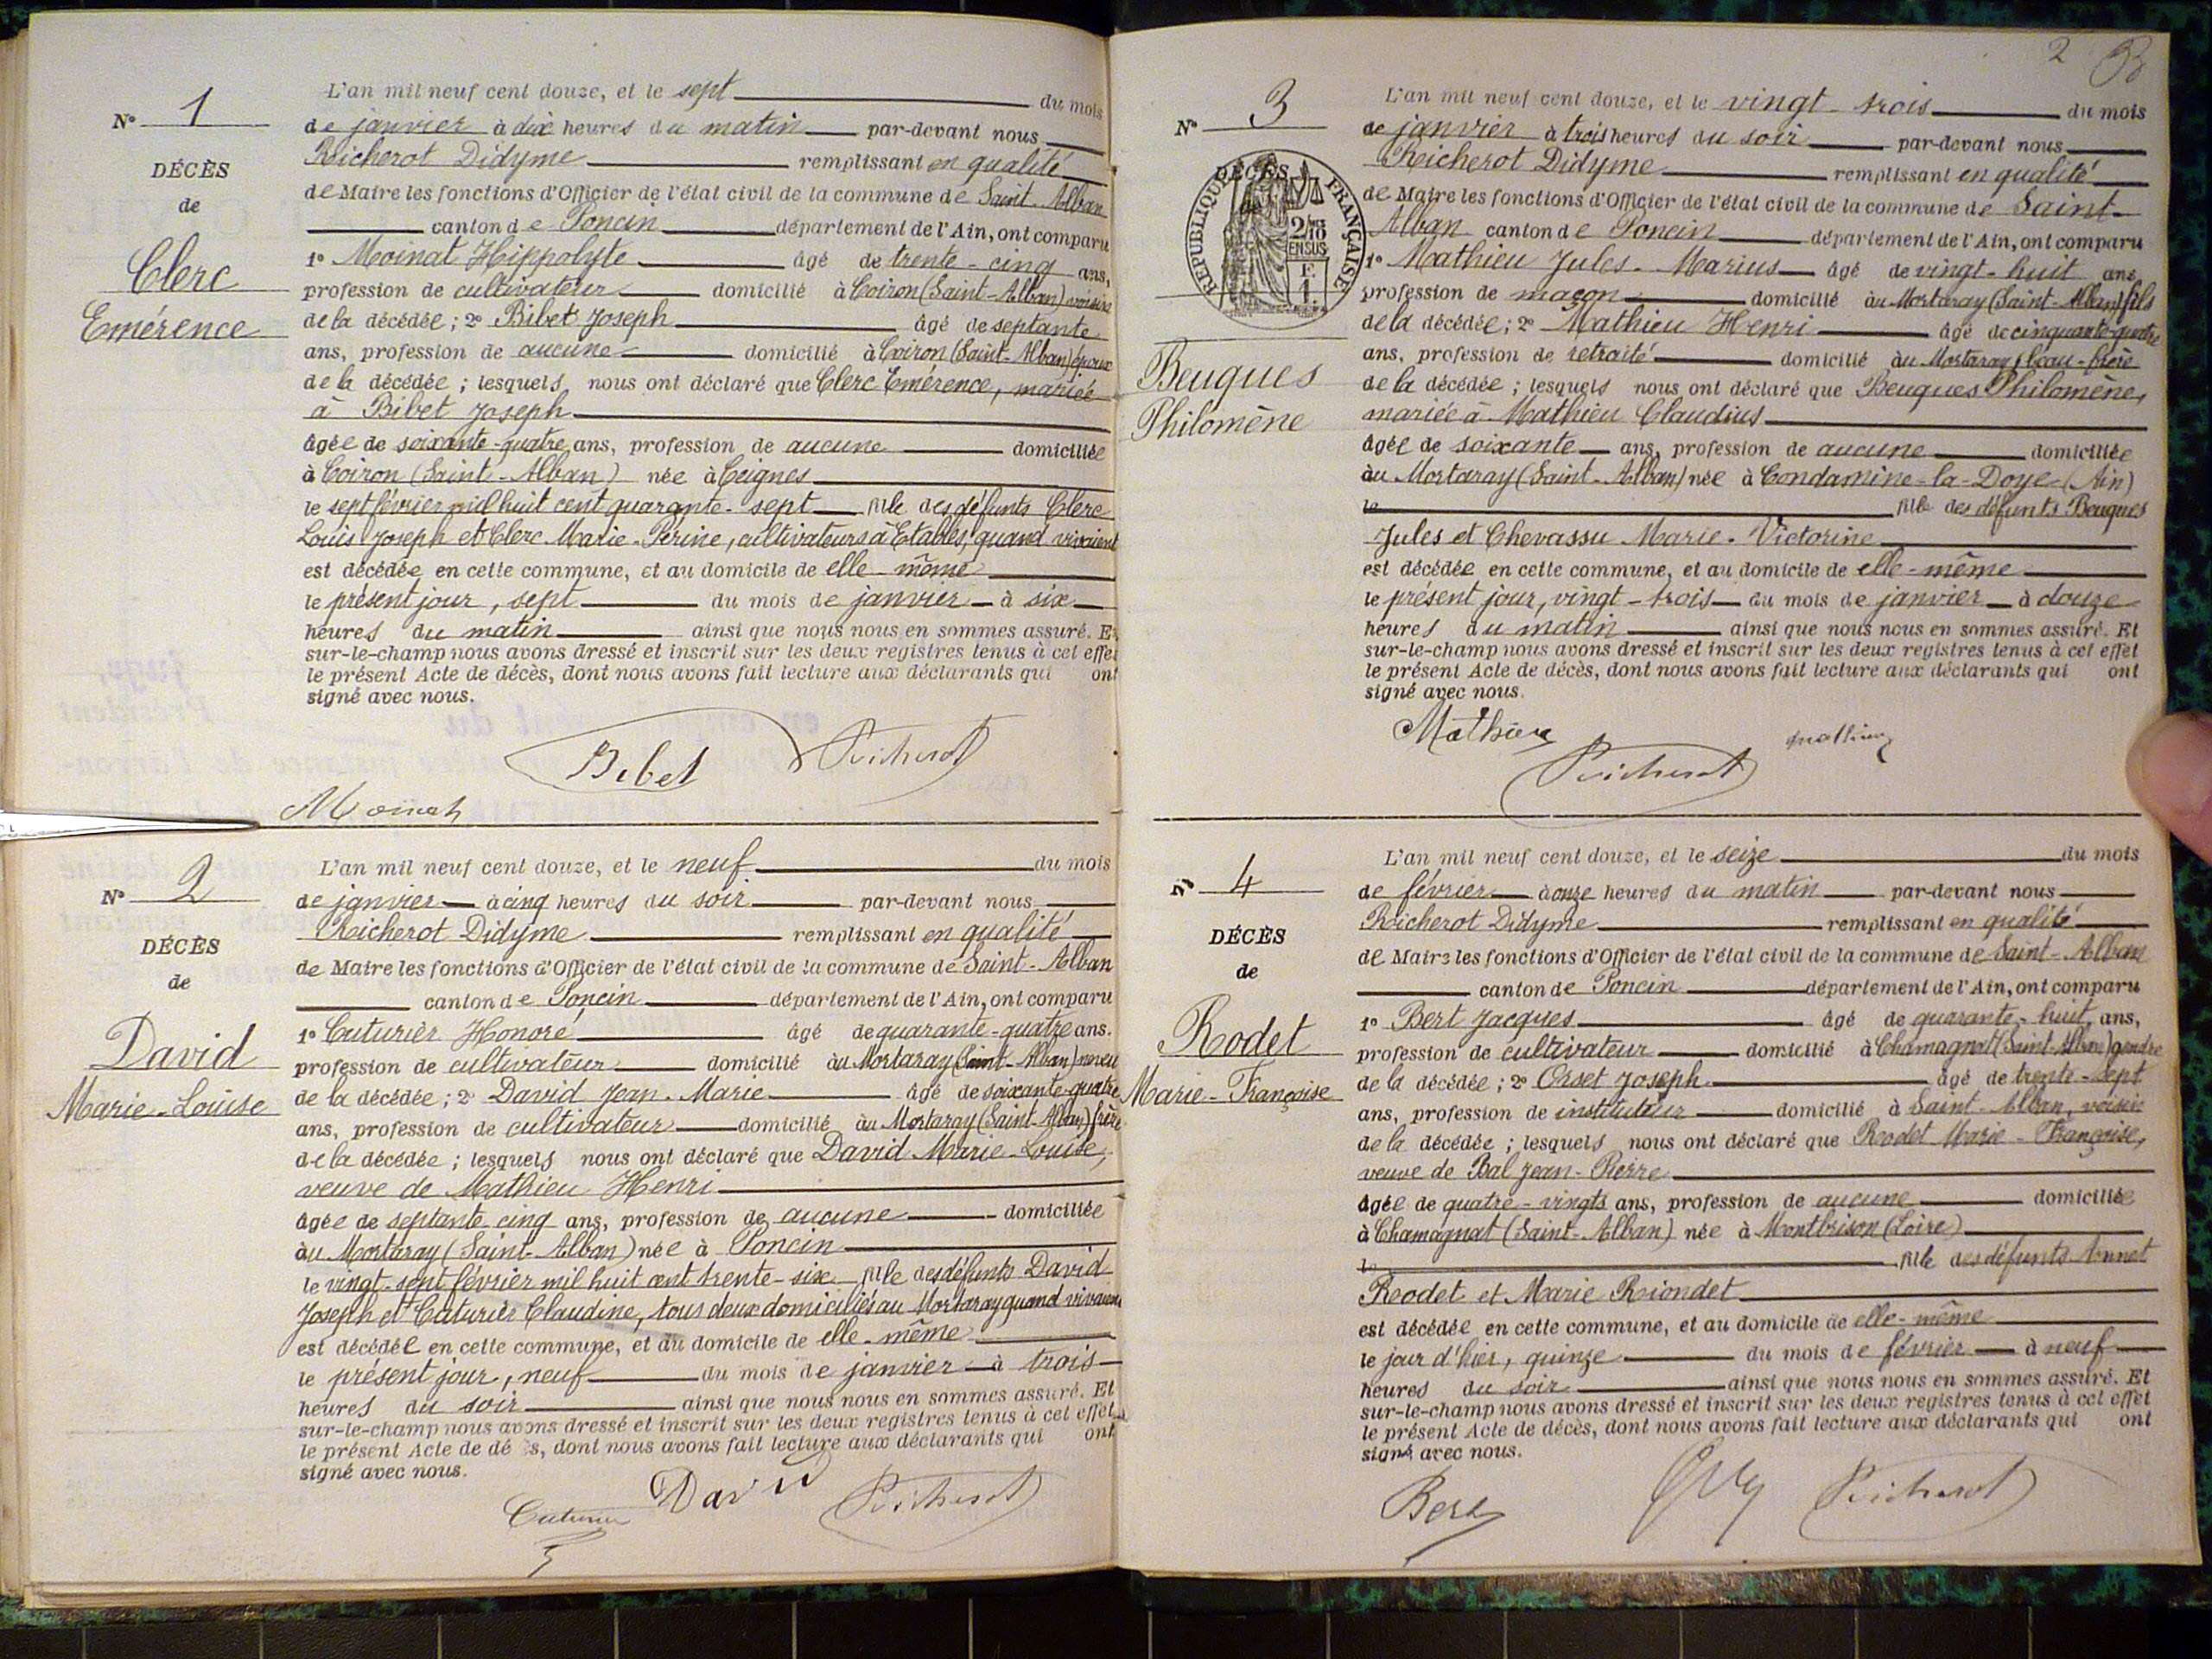 N° 1
DÉCÈS
de
Clerc
Emérence
L'an mil neuf cent douze, et le sept du mois
de janvier à dix heures du matin par-devant nous
Richerot Didyme remplissant en qualité
de Maire les fonctions d'Officier de l'état civil de la commune de Saint-Alban
canton de Poncin département de l'Ain, ont comparu
1° Moinat Hippolyte âgé de trente-cinq ans,
profession de cultivateur domicilié à Coiron (Saint-Alban) voisin
de la décédée; 2° Bibet Joseph âgé de septante
ans, profession de aucune domicilié à Coiron (Saint-Alban) époux
de la décédée; lesquels nous ont déclaré que Clerc Emérence, mariée
à Bibet Joseph
âgée de soixante-quatre ans, profession de aucune domiciliée
à Coiron (Saint-Alban) née à Ceignes
le sept février mil huit cent quarante-sept fille des défunts Clerc
Louis Joseph et Clerc Marie-Périne, cultivateurs à Etables, quand vivaient
est décédée en cette commune, et au domicile de elle-même
le présent jour, sept du mois de janvier à six
heures du matin ainsi que nous nous en sommes assuré. Et
sur-le-champ nous avons dressé et inscrit sur les deux registres tenus à cet effet
le présent Acte de décès, dont nous avons fait lecture aux déclarants qui ont
signé avec nous.
Bibet Richerot
Moinat
N° 2
DÉCÈS
de
David
Marie-Louise
L'an mil neuf cent douze, et le neuf du mois
de janvier à cinq heures du soir par-devant nous
Richerot Didyme remplissant en qualité
de Maire les fonctions d'Officier de l'état civil de la commune de Saint-Alban
canton de Poncin département de l'Ain, ont comparu
1° Cuturier Honoré âgé de quarante-quatre ans.
profession de cultivateur domicilié au Mortaray (Saint-Alban) neveu
de la décédée; 2° David Jean-Marie âgé de soixante-quatre
ans, profession de cultivateur domicilié au Mortaray (Saint-Alban) frère
de la décédée; lesquels nous ont déclaré que David Marie-Louise,
veuve de Mathieu Henri
âgée de septante cinq ans, profession de aucune domiciliée
au Mortaray (Saint-Alban) née à Poncin
le vingt-sept février mil huit cent trente-six fille des défunts David
Joseph et Cuturier Claudine, tous deux domiciliés au Mortaray quand vivaient
est décédée en cette commune, et au domicile de elle-même
le présent jour, neuf du mois de janvier à trois
heures du soir ainsi que nous nous en sommes assuré. Et
sur-le-champ nous avons dressé et inscrit sur les deux registres tenus à cet effet
le présent Acte de dé s, dont nous avons fait lecture aux déclarants qui ont
signé avec nous.
Cuturier David Richerot
2
N° 3
DÉCÈS
RÉPUBLIQUE FRANÇAISE
2/10
EN SUS
F.
1
Beuques
Philomène
L'an mil neuf cent douze, et le vingt-trois du mois
de janvier à trois heures du soir par-devant nous
Richerot Didyme remplissant en qualité
de Maire les fonctions d'Officier de l'état civil de la commune de Saint-
Alban canton de Poncin département de l'Ain, ont comparu
1° Mathieu Jules-Marius âgé de vingt-huit ans,
profession de maçon domicilié au Mortaray (Saint-Alban) fils
de la décédée; 2° Mathieu Henri âgé de cinquante-quatre
ans, profession de retraité domicilié au Mortaray, beau-frère
de la décédée; lesquels nous ont déclaré que Beuques Philomène,
mariée à Mathieu Claudius
âgée de soixante ans, profession de aucune domiciliée
au Mortaray (Saint-Alban) née à Condamine-la-Doye (Ain)
le fille des défunts Beuques
Jules et Chevassu Marie-Victorine
est décédée en cette commune, et au domicile de elle-même
le présent jour, vingt-trois du mois de janvier à douze
heures du matin ainsi que nous nous en sommes assuré. Et
sur-le-champ nous avons dressé et inscrit sur les deux registres tenus à cet effet
le présent Acte de décès, dont nous avons fait lecture aux déclarants qui ont
signé avec nous.
Mathieu Richerot mathieu
N° 4
DÉCÈS
de
Rodet
Marie-Françoise
L'an mil neuf cent douze, et le seize du mois
de février à onze heures du matin par-devant nous
Richerot Didyme remplissant en qualité
de Maire les fonctions d'Officier de l'état civil de la commune de Saint-Alban
canton de Poncin département de l'Ain, ont comparu
1° Bert Jacques âgé de quarante-huit ans,
profession de cultivateur domicilié à Chamagnat (Saint-Alban) gendre
de la décédée; 2° Orset Joseph âgé de trente-sept
ans, profession de instituteur domicilié à Saint-Alban, voisin
de la décédée; lesquels nous ont déclaré que Rodet Marie-Françoise,
veuve de Bal Jean-Pierre
âgée de quatre-vingts ans, profession de aucune domiciliée
à Chamagnat (Saint-Alban) née à Montbrison (Loire)
le fille des défunts Annet
Rodet et Marie Riondet
est décédée en cette commune, et au domicile de elle-même
le jour d'hier, quinze du mois de février à neuf
heures du soir ainsi que nous nous en sommes assuré. Et
sur-le-champ nous avons dressé et inscrit sur les deux registres tenus à cet effet
le présent Acte de décès, dont nous avons fait lecture aux déclarants qui ont
signé avec nous.
Bert Richerot